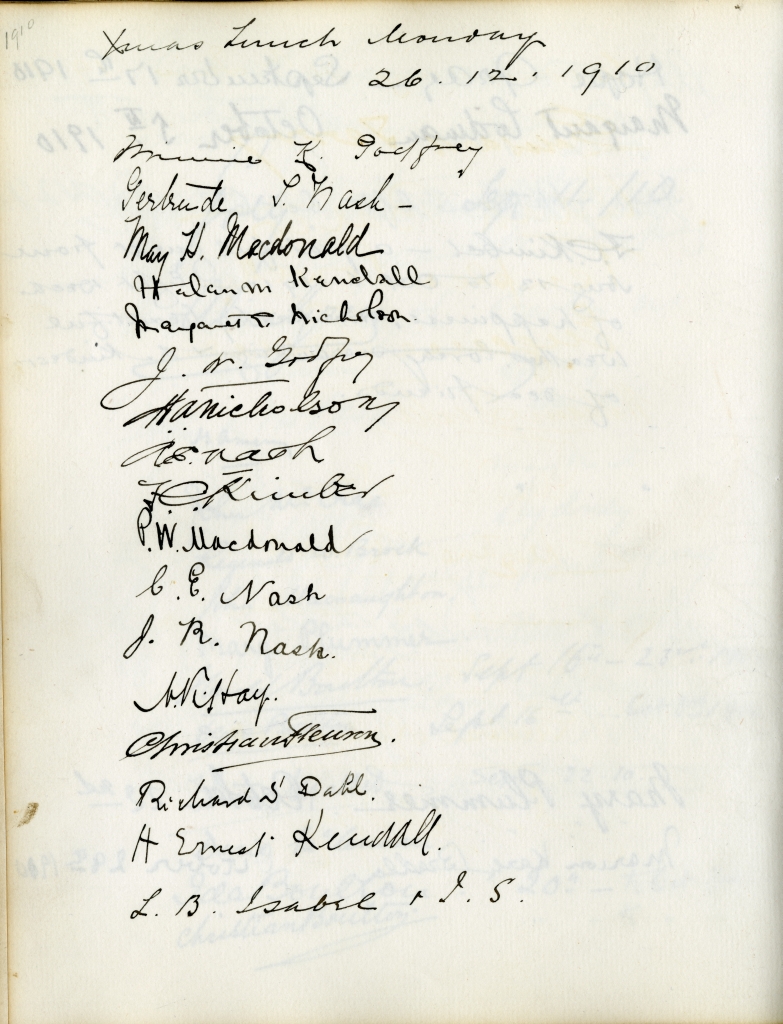 1910
Xmas Lunch Monday
26.12.1910
Minnie K. Godfrey
Gertrude S. Nash -
May H. Macdonald
Helen M Kendall
Margaret T. Nicholson.
J. W. Godfrey
H A Nicholson
A E. Nash
F. C. Kimber
P. W. Macdonald
C. E. Nash
J. R. Nash.
Hay.
Christian
Richard S Dahl.
H Ernest Kendall.
L. B. Isabel + I. S.